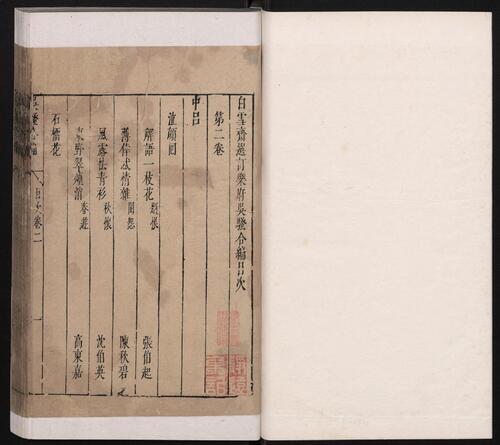 白雪齋選訂樂府吳騷合編目次
第二卷
中呂
漁顏回
解語一枝花 題恨 張伯起
薄倖忒情雜 閨怨 陳秋碧
風露怯青衫 秋懷 沈伯英
東野翠煙消 春遊 高東嘉
石榴花
目次卷二